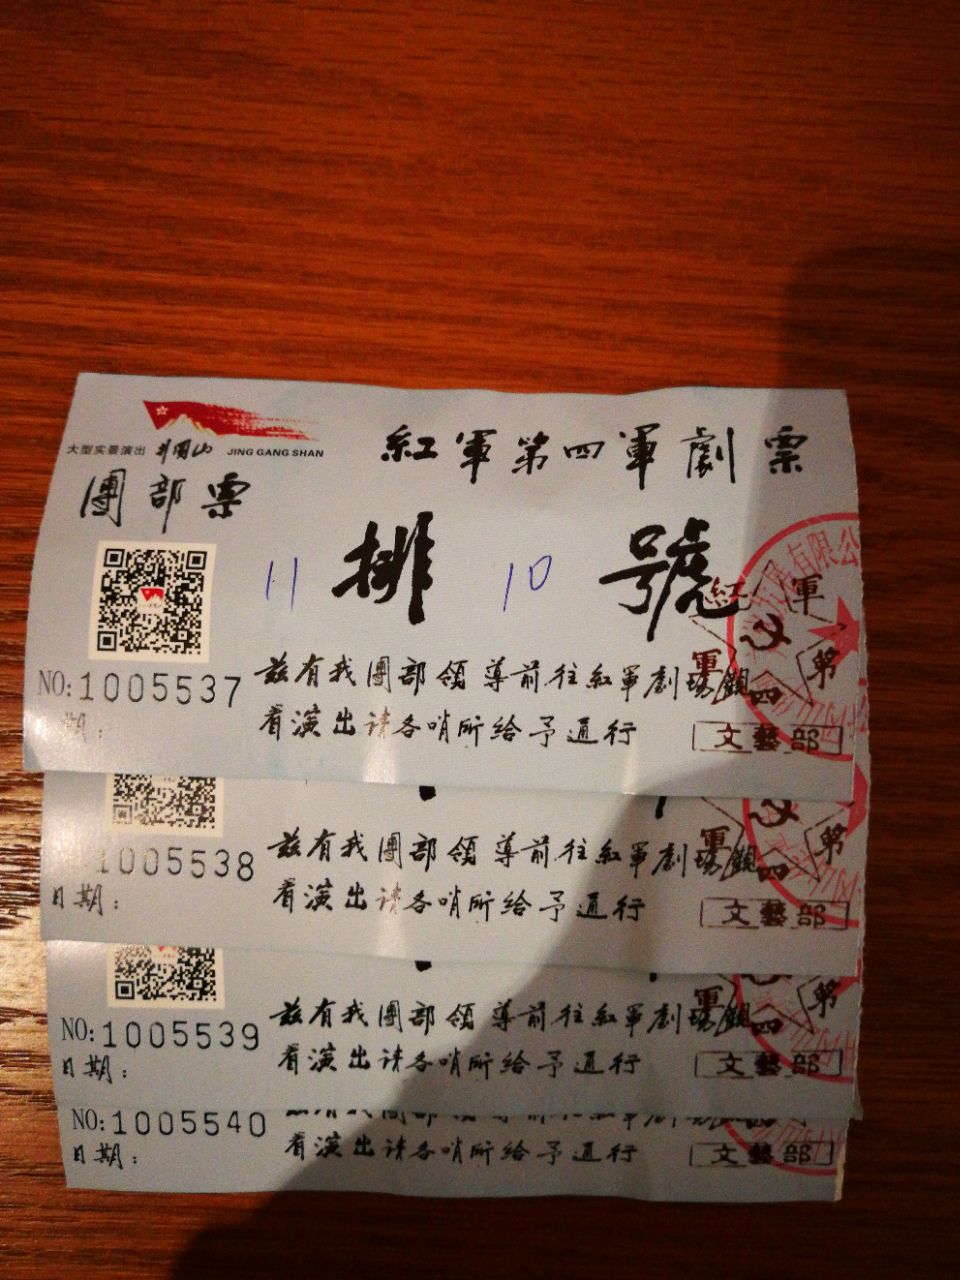 大型实景演出 井冈山 JING GANG SHAN
紅軍第四軍劇票
團部票
11 排 10 號
NO:1005537
茲有我團部領導前往紅軍劇場觀
看演出请各哨所给予通行
期:
有限公
紅軍
軍 第
四
文藝部
1005538
茲有我團部領導前往紅軍劇場觀
看演出请各哨所给予通行
日期:
軍 第
四
文藝部
NO:1005539
茲有我團部領導前往紅軍劇場觀
看演出请各哨所给予通行
日期:
軍 第
四
文藝部
NO:1005540
看演出请各哨所给予通行
日期:
文藝部